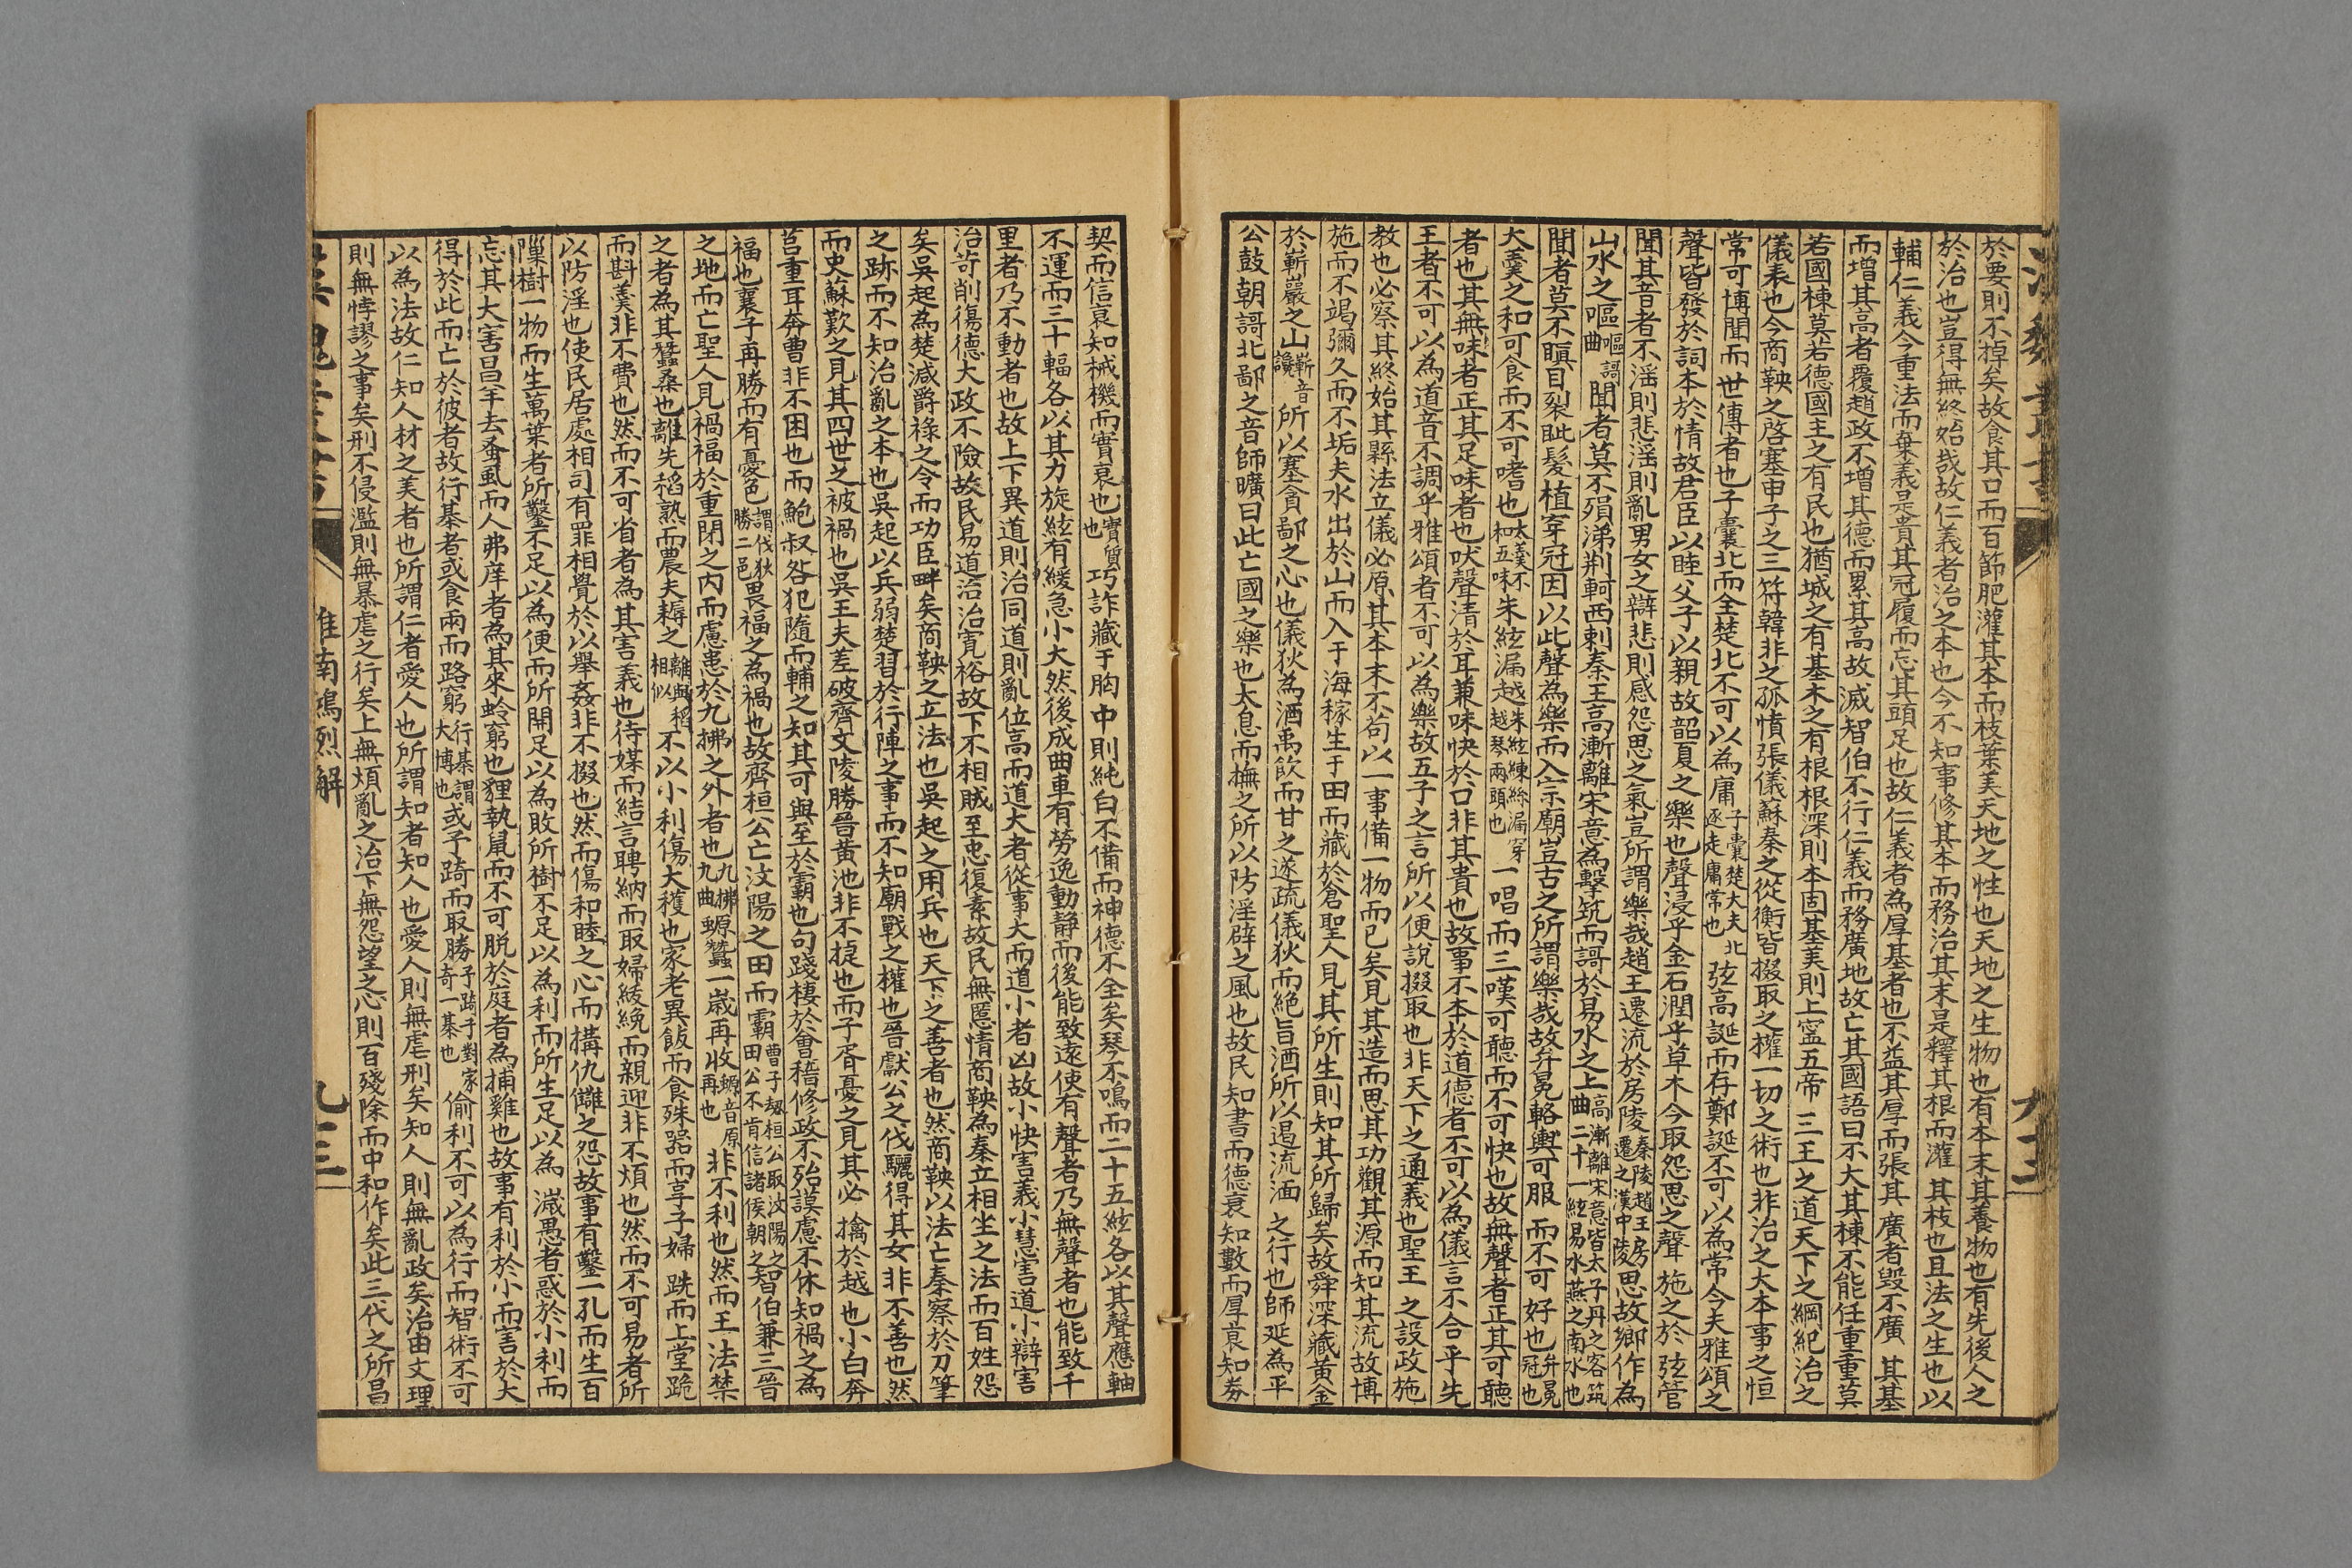 於要則不掉矣故食其口而百節肥灌其本而枝葉美天地之性也天地之生物也有本末其養物也有先後人之
於治也豈得無終始哉故仁義者治之本也今不知事修其本而務治其末是釋其根而灌其枝也且法之生也以
輔仁義今重法而棄義是貴其冠履而忘其頭足也故仁義者為厚基者也不益其厚而張其廣者毀不廣其基
而增其高者覆趙政不增其德而累其高故滅智伯不行仁義而務廣地故亡其國語曰不大其棟不能任重重莫
若國棟莫若德國主之有民也猶城之有基木之有根根深則本固基美則上寧五帝三王之道天下之綱紀治之
儀表也今商鞅之啓塞申子之三符韓非之孤憤張儀蘇秦之從衡皆掇取之權一切之術也非治之大本事之恒
常可博聞而世傳者也子囊北而全楚北不可以為庸子囊楚大夫北逐走庸常也弦高誕而存鄭誕不可以為常今夫雅頌之
聲皆發於詞本於情故君臣以睦父子以親故韶夏之樂也聲浸乎金石潤乎草木今取怨思之聲施之於弦管
聞其音者不淫則悲淫則亂男女之辯悲則感怨思之氣豈所謂樂哉趙王遷流於房陵秦陵趙王房遷之漢中陵思故鄉作為
山水之嘔嘔謌曲聞者莫不殞涕荆軻西刺秦王高漸離宋意為擊筑而謌於易水之上高漸離宋意皆太子丹之客筑曲二十一絃易水燕之南水也
聞者莫不瞋目裂眦髮植穿冠因以此聲為樂而入宗廟豈古之所謂樂哉故弁冕輅輿可服而不可好也弁冕冠也
大羹之和可食而不可嗜也太羹不和五味朱絃漏越朱絃練絲漏穿越琴兩頭也一唱而三嘆可聽而不可快也故無聲者正其可聽
者也其無味者正其足味者也吠聲清於耳兼味快於口非其貴也故事不本於道德者不可以為儀言不合乎先
王者不可以為道音不調乎雅頌者不可以為樂故五子之言所以便說掇取也非天下之通義也聖王之設政施
教也必察其終始其縣法立儀必原其本末不苟以一事備一物而已矣見其造而思其功觀其源而知其流故博
施而不竭彌久而不垢夫水出於山而入于海稼生于田而藏於倉聖人見其所生則知其所歸矣故舜深藏黄金
於嶄巖之山嶄音讒所以塞貪鄙之心也儀狄為酒禹飲而甘之遂疏儀狄而絶旨酒所以遏流湎之行也師延為平
公鼓朝謌北鄙之音師曠曰此亡國之樂也太息而撫之所以防淫辟之風也故民知書而德衰知數而厚衰知券
契而信衰知械機而實衰也實質也巧詐藏于胸中則純白不備而神德不全矣琴不鳴而二十五絃各以其聲應軸
不運而三十輻各以其力旋絃有緩急小大然後成曲車有勞逸動静而後能致遠使有聲者乃無聲者也能致千
里者乃不動者也故上下異道則治同道則亂位高而道大者從事大而道小者凶故小快害義小慧害道小辯害
治苛削傷德大政不險故民易道治治寬裕故下不相賊至忠復素故民無慝情商鞅為秦立相坐之法而百姓怨
矣吳起為楚減爵祿之令而功臣畔矣商鞅之立法也吳起之用兵也天下之善者也然商鞅以法亡秦察於刀筆
之跡而不知治亂之本也吳起以兵弱楚習於行陣之事而不知廟戰之權也晉獻公之伐驪得其女非不善也然
而史蘇歎之見其四世之被禍也吳王夫差破齊艾陵勝晉黄池非不捷也而子胥憂之見其必擒於越也小白奔
莒重耳奔曹非不困也而鮑叔咎犯隨而輔之知其可與至於霸也句踐棲於會稽修政不殆謨慮不休知禍之為
福也襄子再勝而有憂色謂伐狄勝二邑畏福之為禍也故齊桓公亡汶陽之田而霸曹子劫桓公取汶陽之田公不肯信諸侯朝之智伯兼三晉
之地而亡聖人見禍福於重閉之内而慮患於九拂之外者也九拂九曲螈蠶一歲再收螈音原再也非不利也然而王法禁
之者為其蠶桑也離先稻熟而農夫耨之離與稻相似不以小利傷大穫也家老異飯而食殊器而享子婦跣而上堂跪
而斟羹非不費也然而不可省者為其害義也待媒而結言聘納而取婦紱絻而親迎非不煩也然而不可易者所
以防淫也使民居處相司有罪相覺於以舉姦非不掇也然而傷和睦之心而構仇讎之怨故事有鑿一孔而生百
隟樹一物而生萬葉者所鑿不足以為便而所開足以為敗所樹不足以為利而所生足以為濊愚者惑於小利而
忘其大害昌羊去蚤虱而人弗庠者為其來蛉窮也貍執鼠而不可脱於庭者為捕雞也故事有利於小而害於大
得於此而亡於彼者故行棊者或食兩而路窮行棊謂大博也或予踦而取勝予踦予對家奇一棊也偷利不可以為行而智術不可
以為法故仁知人材之美者也所謂仁者愛人也所謂知者知人也愛人則無虐刑矣知人則無亂政矣治由文理
則無悖謬之事矣刑不侵濫則無暴虐之行矣上無煩亂之治下無怨望之心則百殘除而中和作矣此三代之所昌
淮南鴻烈解
九三